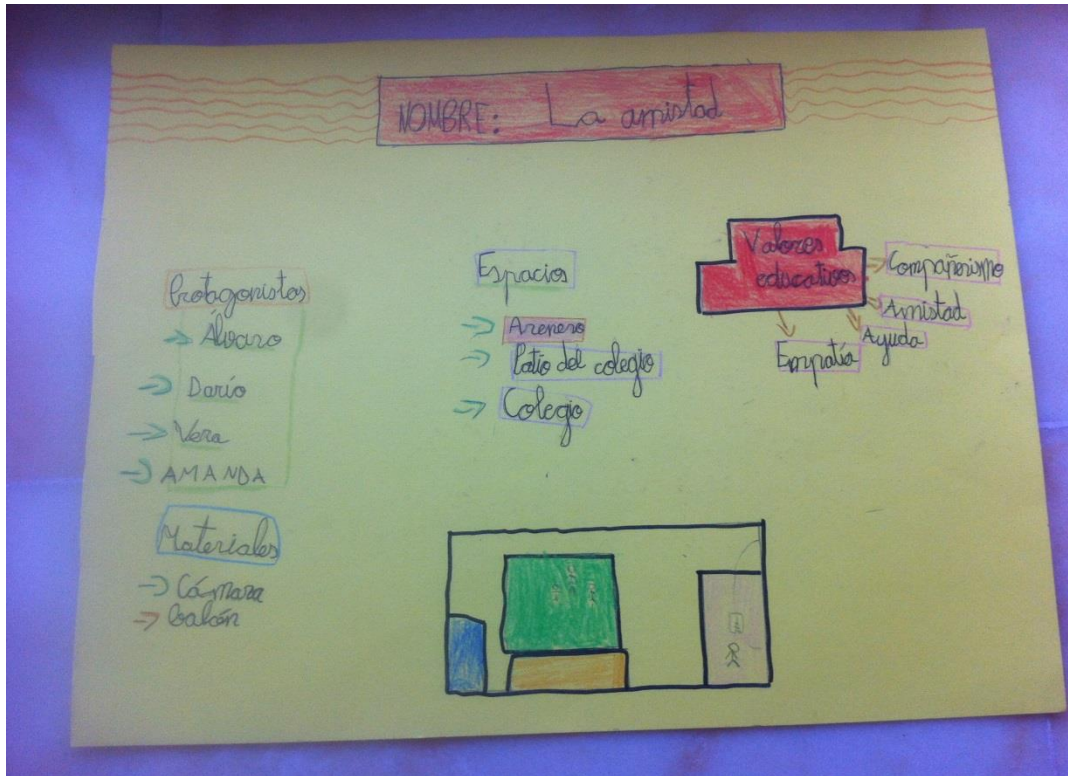 NOMBRE: La amistad
Protagonistas
Álvaro
Darío
Vera
AMANDA
Materiales
Cámara
balón
Espacios
Arenero
Patio del colegio
Colegio
Valores
educativos
Compañerismo
Amistad
Ayuda
Empatía